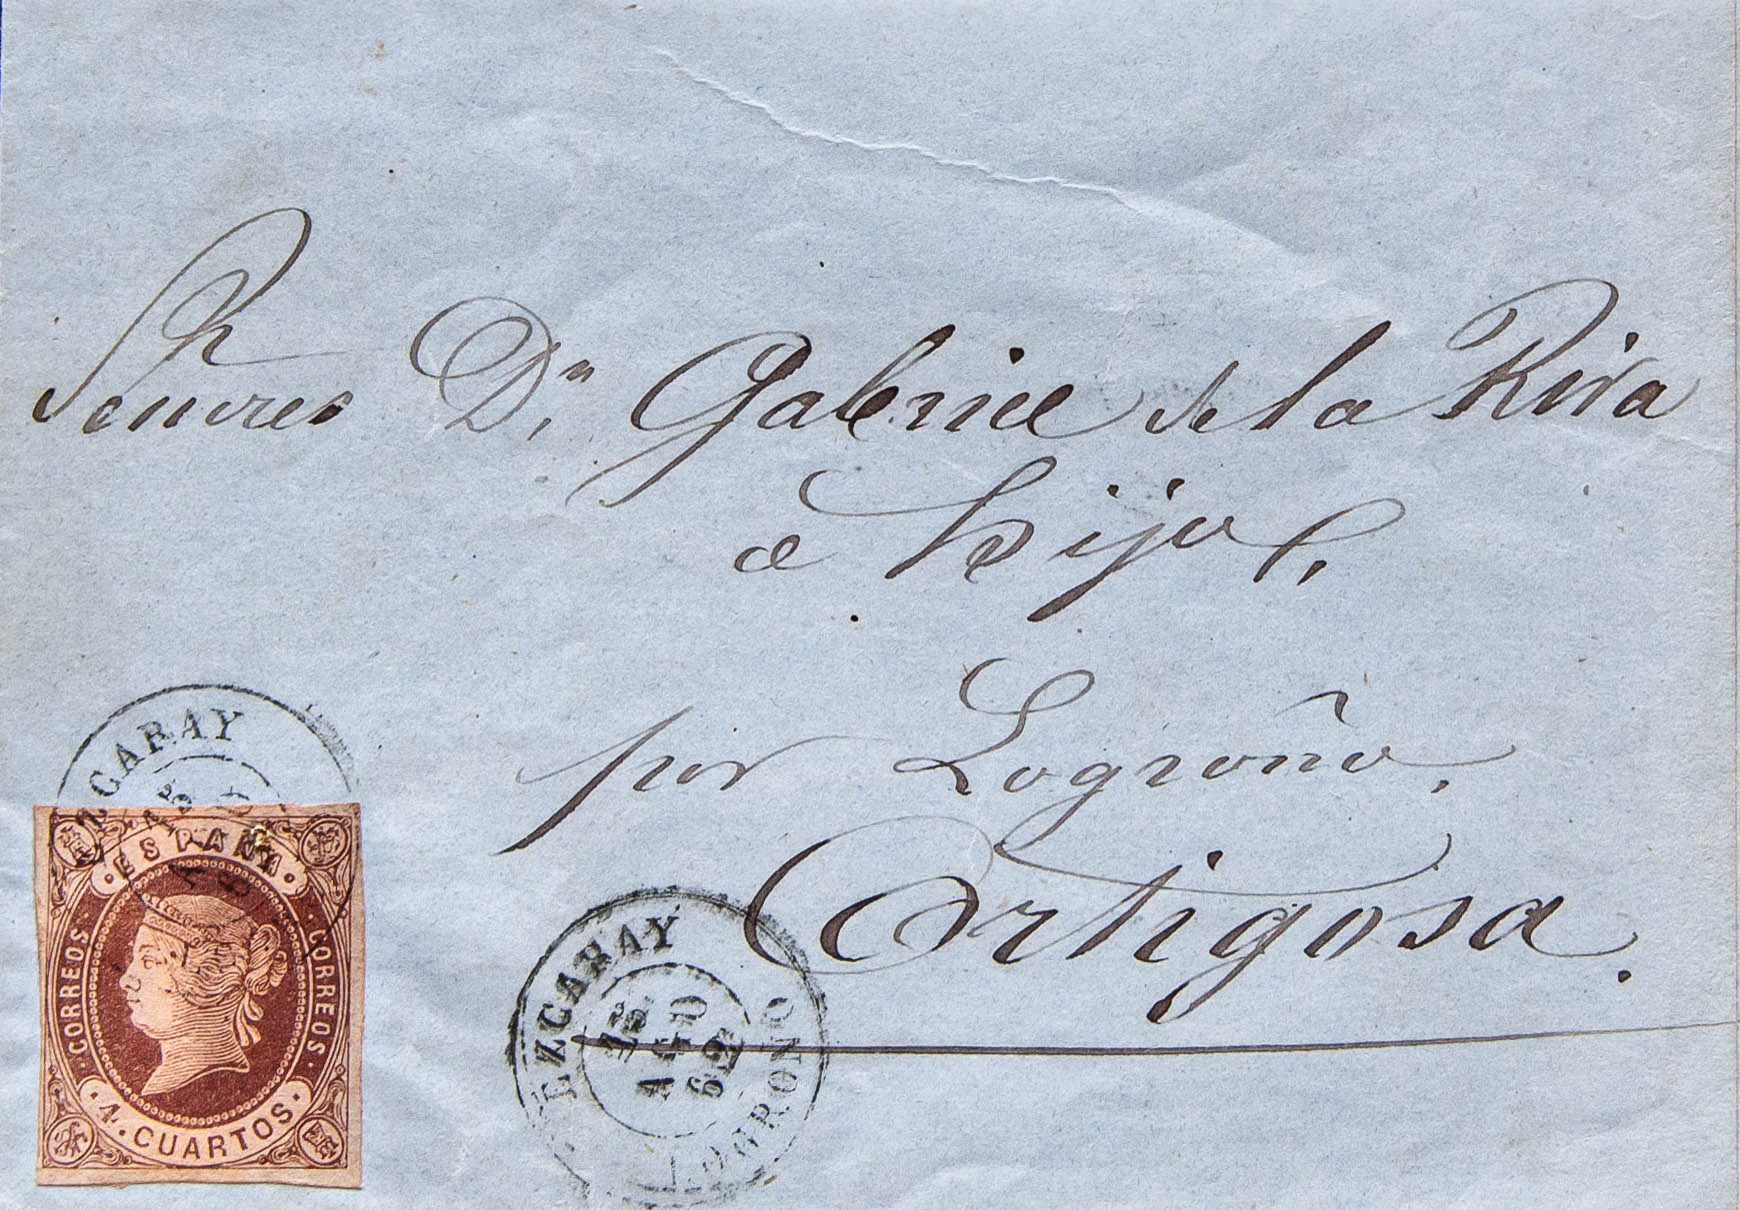 Señores Dn Gabriel de la Riva
e hijos.
por Logroño.
Ortigosa.
EZCARAY
ESPAÑA
CORREOS
CORREOS
4. CUARTOS
EZCARAY
13
AGO
62
LOGROÑO